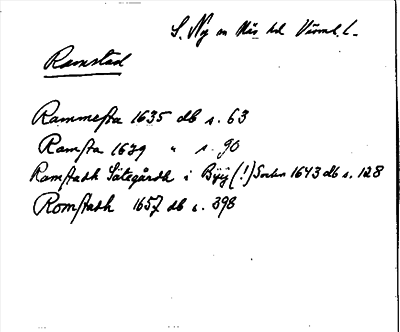 S. Ny m Näs hd Värml. l.
Ramstad
Rammesta 1635 db s. 63
Ramsta 1639 " s. 90
Ramstadh Sätegårdh i Byÿ (!) Sochn 1643 db s. 128
Romstadh 1657 db s. 398